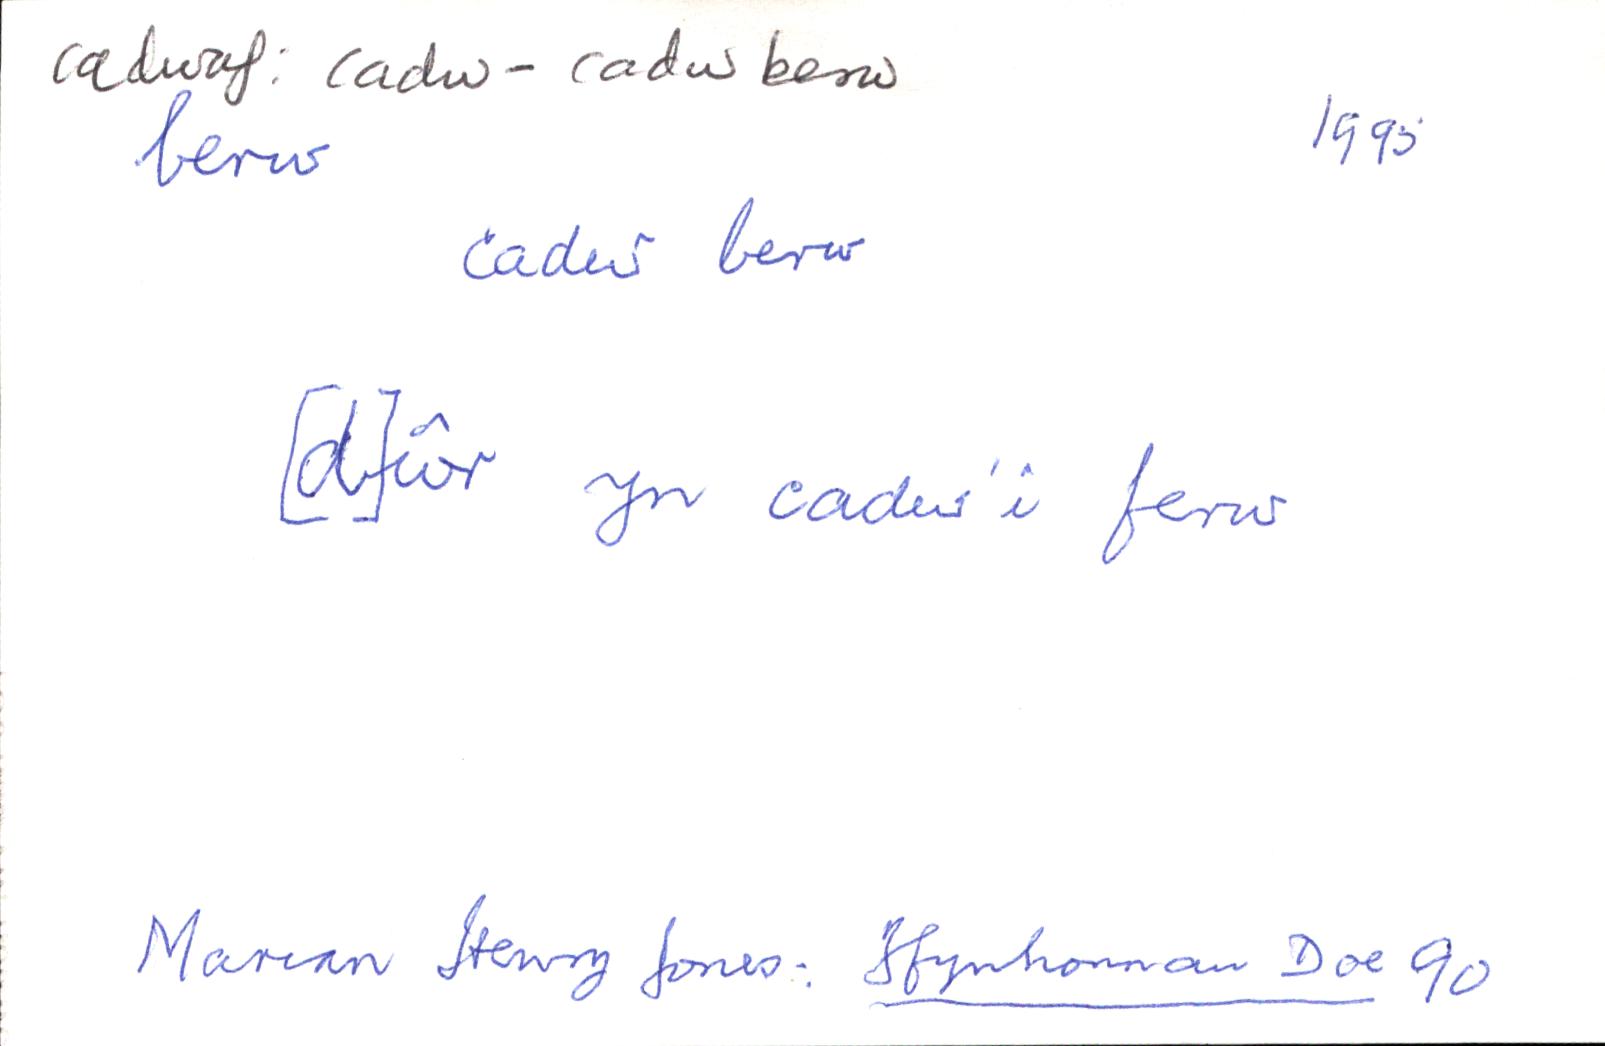 cadwaf: cadw - cadw berw
berw
1995
cadw berw
[d]ŵr yn cadw'i ferw
Marian Henry Jones: Ffynhonnau Doe 90